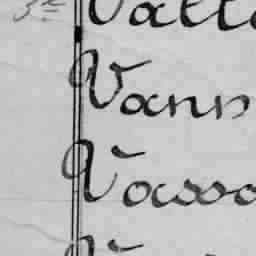 3e Vatt
Vann
Vasso